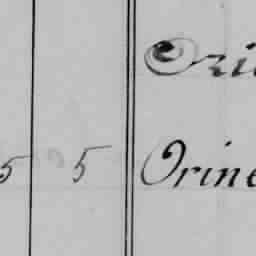 Ori
5 5 Orine